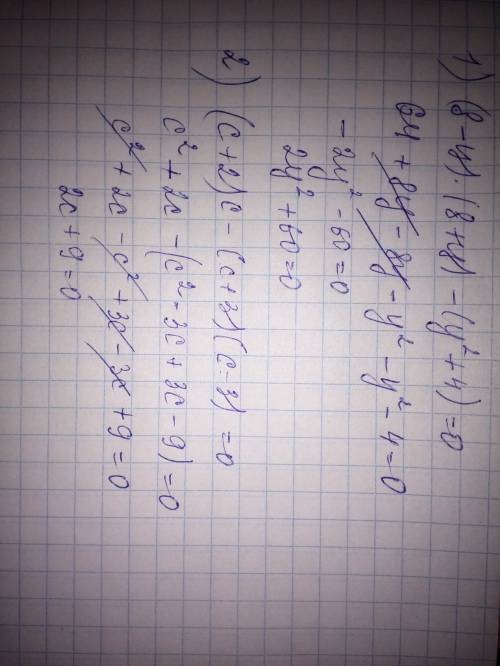 1) (8-y)·(8+y)-(y²+4)=0
64+8y-8y-y²-y²-4=0
-2y²-60=0
2y²+60=0
2) (c+2)c-(c+3)(c-3)=0
c²+2c-(c²-3c+3c-9)=0
c²+2c-c²+3c-3c+9=0
2c+9=0